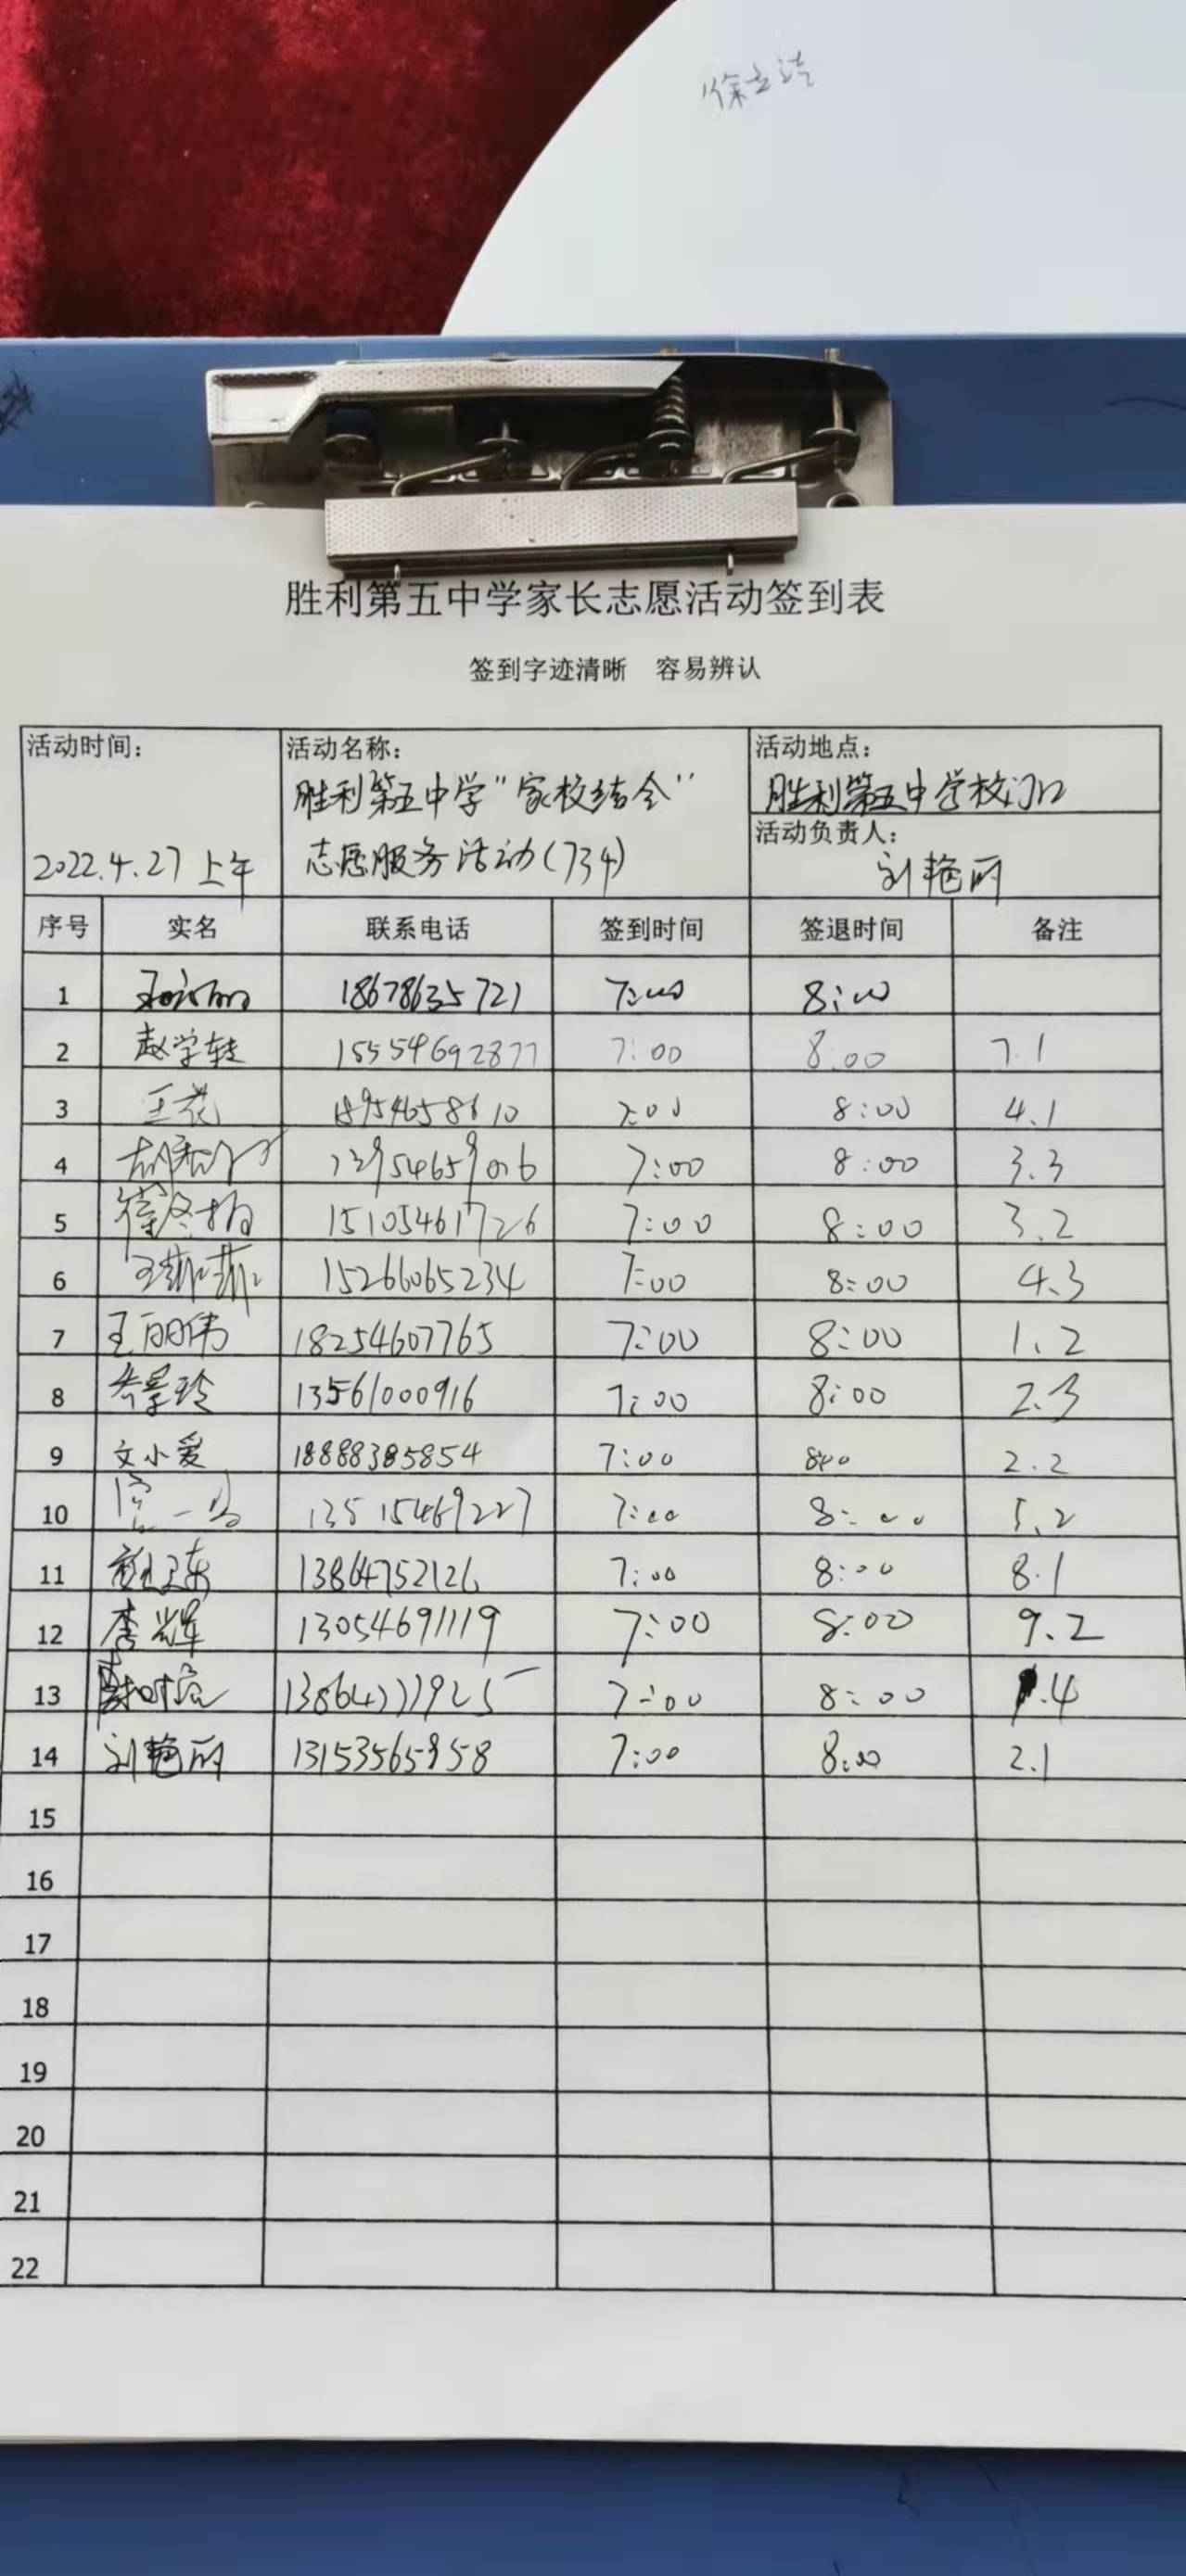 徐立洁
胜利第五中学家长志愿活动签到表
签到字迹清晰 容易辨认
活动时间： 2022.4.27 上午
活动名称： 胜利第五中学"家校结合"
志愿服务活动(734)
活动地点： 胜利第五中学校门口
活动负责人： 刘艳丽
序号 实名 联系电话 签到时间 签退时间 备注
1 18678635721 7:00 8:00
2 15554692877 7:00 8:00 7.1
3 王花 18954658610 7:00 8:00 4.1
4 7:00 8:00 3.3
5 15105461726 7:00 8:00 3.2
6 王菲菲 15266065234 7:00 8:00 4.3
7 王丽伟 18254607765 7:00 8:00 1.2
8 13561000916 7:00 8:00 2.3
9 文小爱 18888385854 7:00 8:00 2.2
10 13515469227 7:00 8:00 5.2
11 13864752126 7:00 8:00 8.1
12 李辉 13054691119 7:00 8:00 9.2
13 7:00 8:00 .4
14 刘艳丽 13153565958 7:00 8:00 2.1
15
16
17
18
19
20
21
22